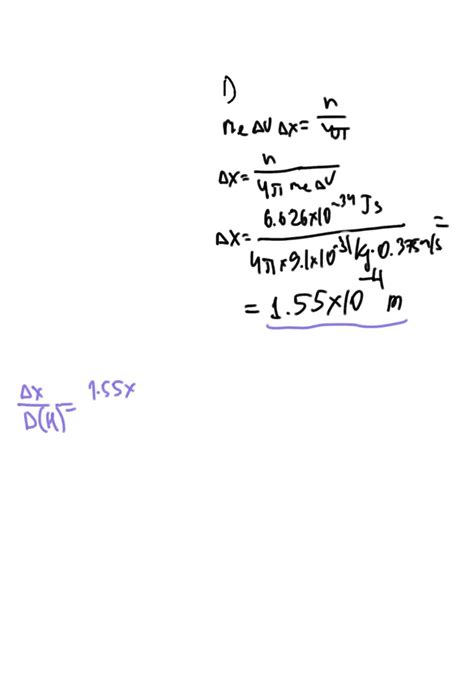 1)
me ΔU Δx = h/4π
Δx = h/4π me ΔU
Δx = 6.626x10^-34 Js/4π x 9.1x10^-31 kg · 0.375m/s =
= 1.55x10^-4 m
Δx/D(H) = 1.55x